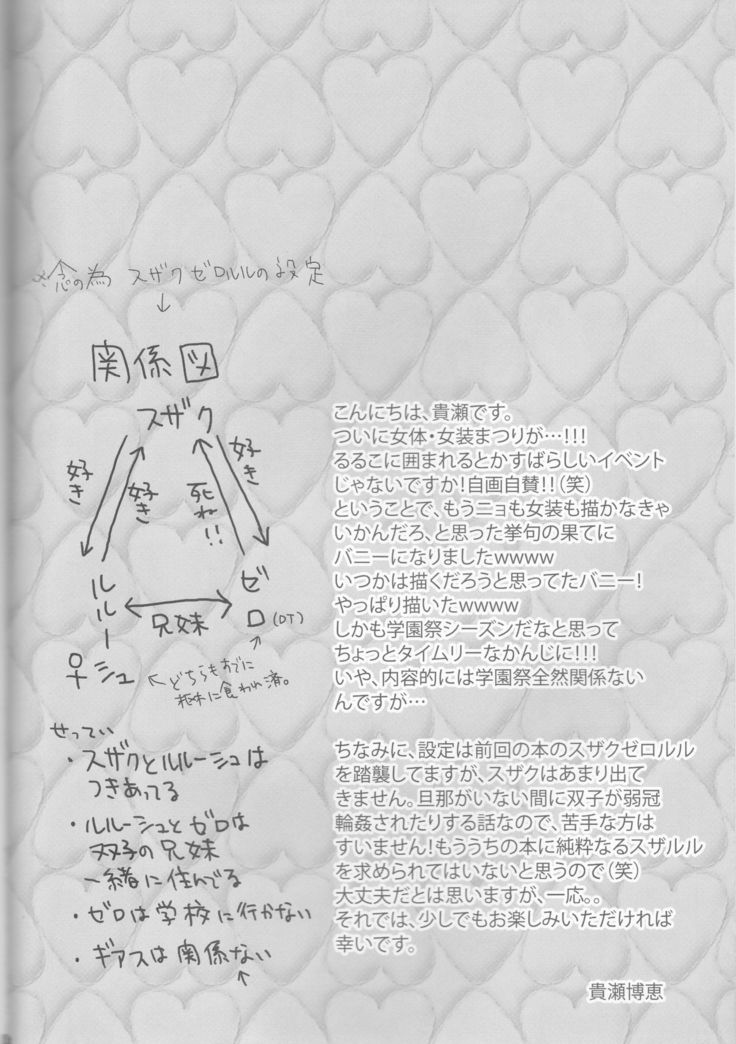 ※念の為 スザクゼロルルの設定
↓
関係図
スザク
好き
好き
死ね!!
好き
ルルーシュ
♀
兄妹
ゼロ(DT)
↑
←どちらもすでに
枢木に食われ済。
せってい
・スザクとルルーシュは
つきあってる
・ルルーシュとゼロは
双子の兄妹
一緒に住んでる
・ゼロは学校に行かない
・ギアスは関係ない
↑
こんにちは、貴瀬です。
ついに女体・女装まつりが…!!!
るるこに囲まれるとかすばらしいイベント
じゃないですか!自画自賛!!(笑)
ということで、もうニョも女装も描かなきゃ
いかんだろ、と思った挙句の果てに
バニーになりましたwwww
いつかは描くだろうと思ってたバニー!
やっぱり描いたwwww
しかも学園祭シーズンだなと思って
ちょっとタイムリーなかんじに!!!
いや、内容的には学園祭全然関係ない
んですが…
ちなみに、設定は前回の本のスザクゼロルル
を踏襲してますが、スザクはあまり出て
きません。旦那がいない間に双子が弱冠
輪姦されたりする話なので、苦手な方は
すいません!もううちの本に純粋なるスザルル
を求められてはいないと思うので(笑)
大丈夫だとは思いますが、一応。。
それでは、少しでもお楽しみいただければ
幸いです。
貴瀬博恵